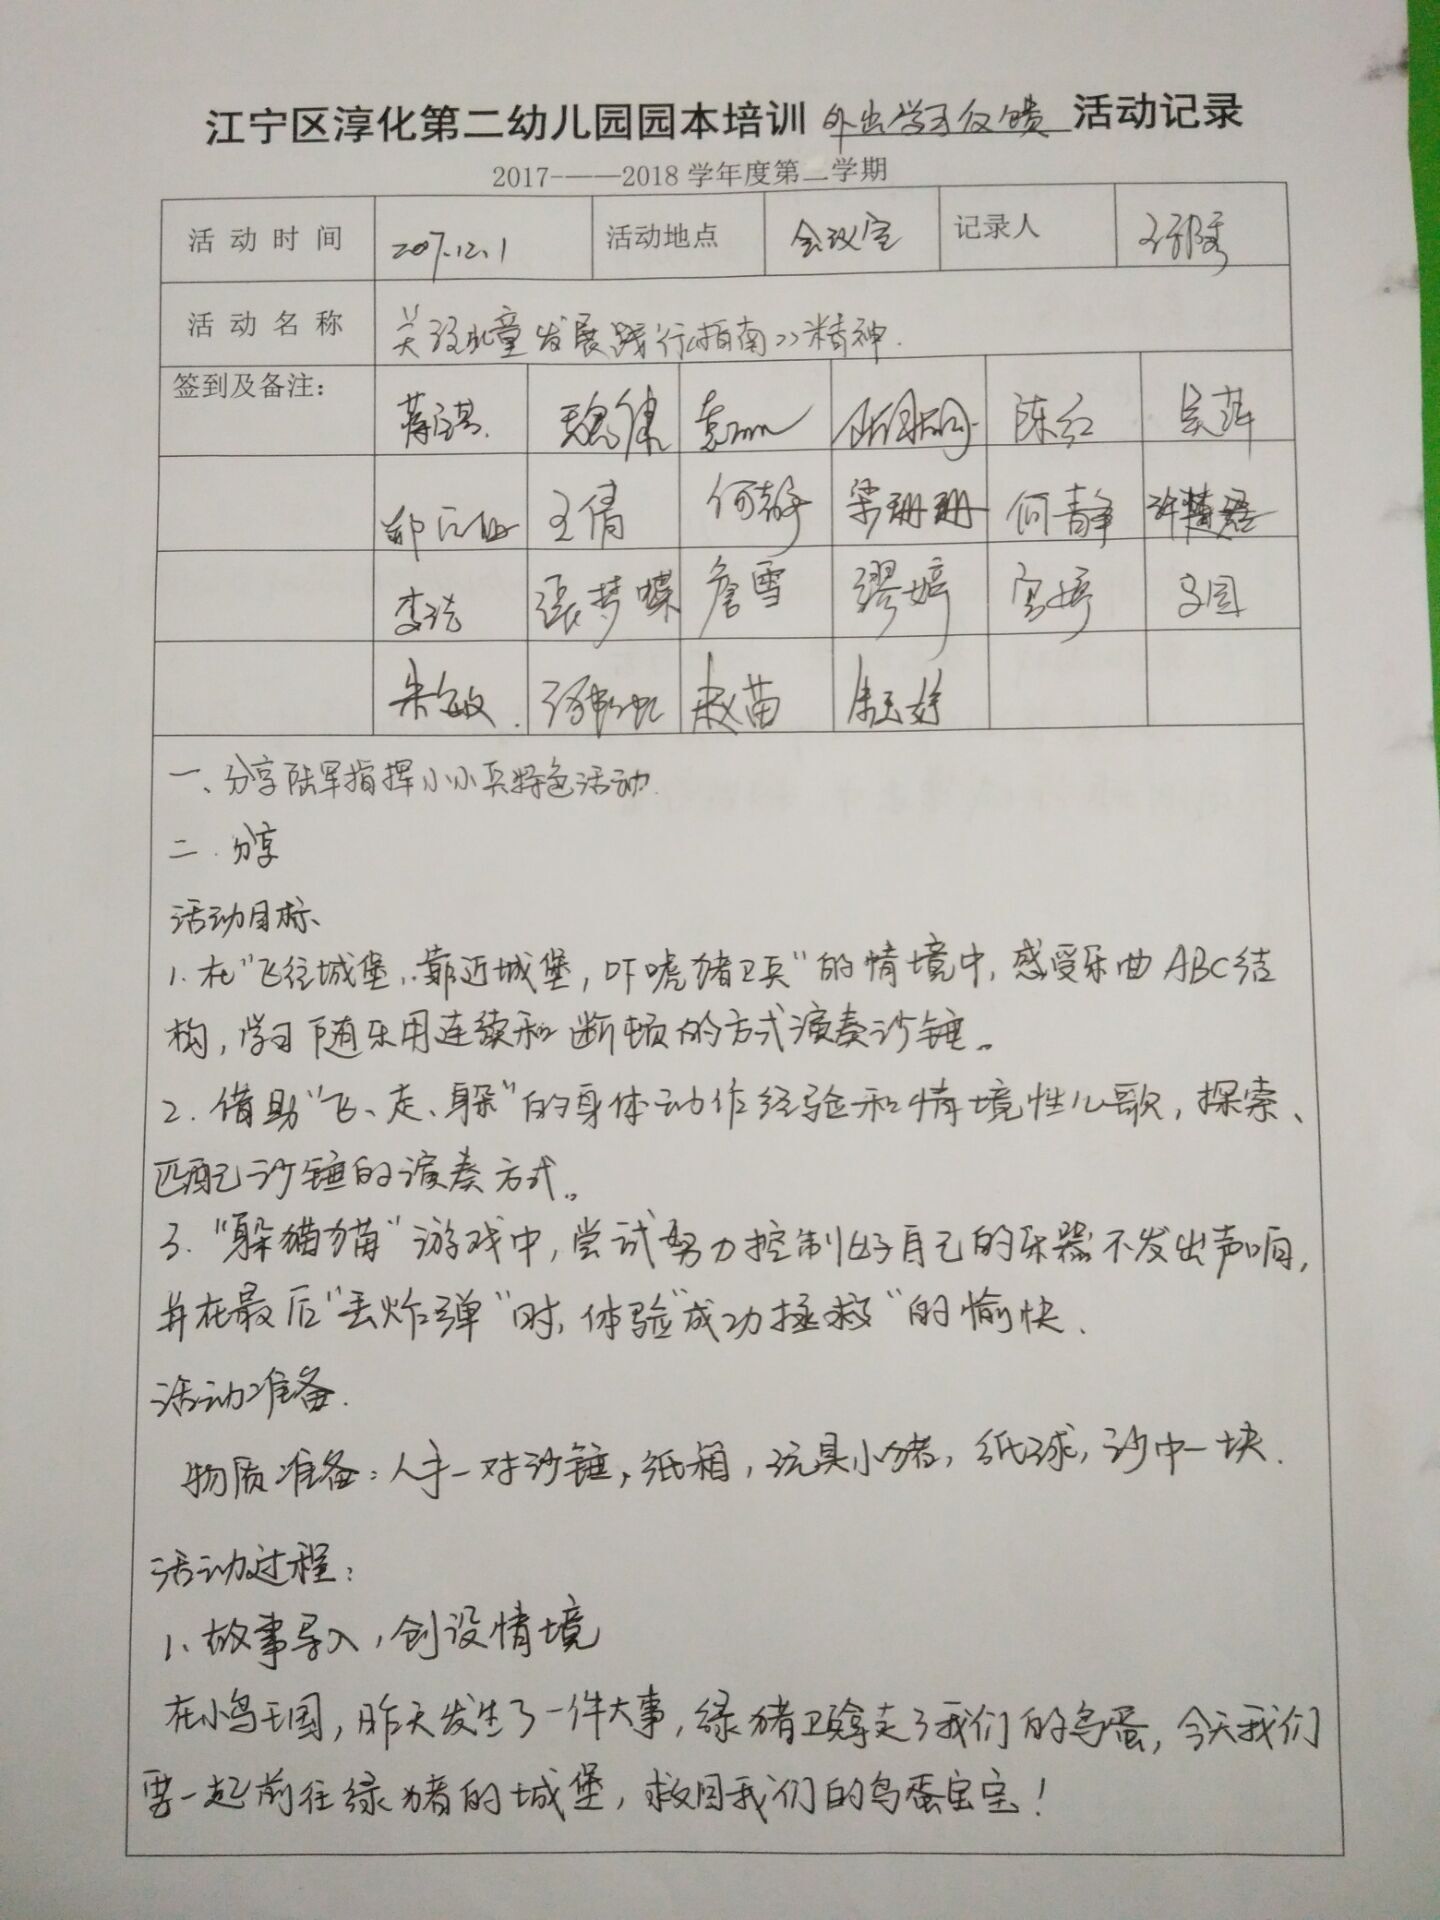 江宁区淳化第二幼儿园园本培训 外出学习反馈 活动记录
2017-——2018学年度第二学期
活动时间 2017.12.1 活动地点 会议室 记录人
活动名称 关注儿童发展践行《指南》精神.
签到及备注: 魏健 陈红 吴萍
王倩 何静 宋珊珊 何静
李洁 张梦蝶 詹雪 缪婷 宫婷
朱敏. 赵苗
一、分享陆军指挥小小兵特色活动.
二.分享
活动目标、
1.在"飞往城堡,靠近城堡,吓唬猪卫兵"的情境中,感受乐曲ABC结
构,学习随乐用连续和断顿的方式演奏沙锤。
2.借助"飞、走、躲"的身体动作经验和情境性儿歌,探索、
匹配沙锤的演奏方式。
3."躲猫猫"游戏中,尝试努力控制好自己的乐器不发出声响,
并在最后"丢炸弹"时,体验"成功拯救"的愉快.
活动准备.
物质准备:人手一对沙锤,纸箱,玩具小猪,纸球,沙巾一块.
活动过程:
1、故事导入,创设情境
在小鸟王国,昨天发生了一件大事,绿猪卫拿走了我们的鸟蛋,今天我们
要一起前往绿猪的城堡,救回我们的鸟蛋宝宝!